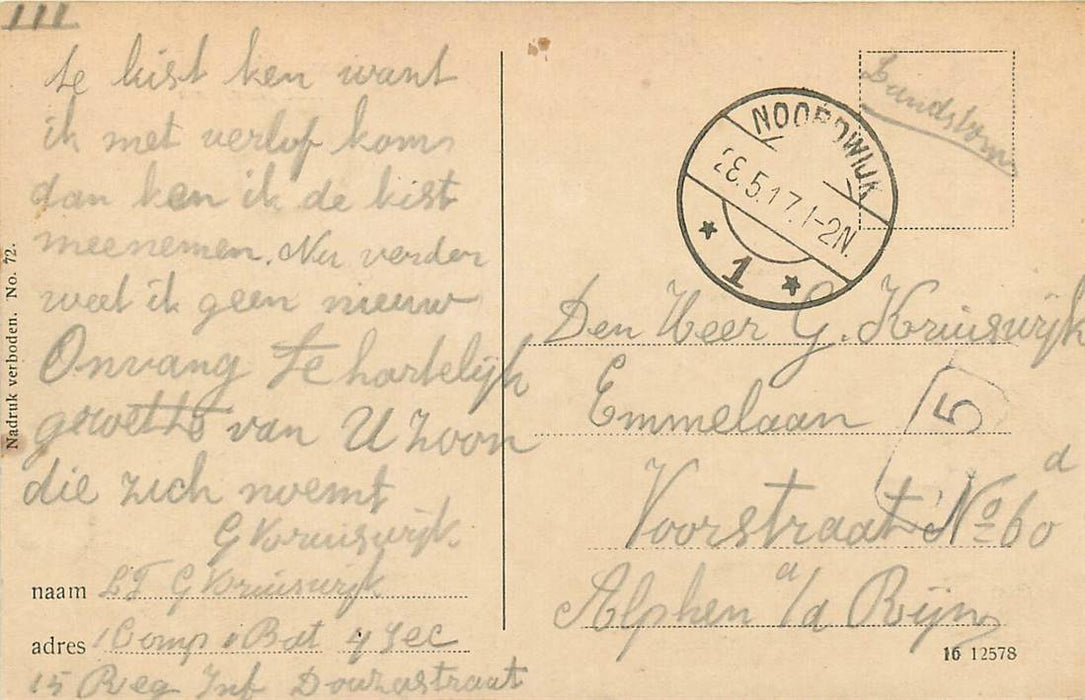 III
te kist ken want
ik met verlof kom
dan ken ik de kist
meenemen. Nu verder
weet ik geen nieuw
Onvang te hartelijk
groetto van U Zoon
die zich noemt
G Kruiswijk.
naam LT G Kruiswijk
adres 1 Comp Bat 4 Sec
15 Reg Inf Douzastraat
Nadruk verboden. No. 72.
Landstorm
NOORDWIJK
28.5.17.1-2N.
1
Den Heer G. Kruiswijk
Emmelaan
5
Voorstraat No 60 d
Alphen a/d Rijn
16 12578